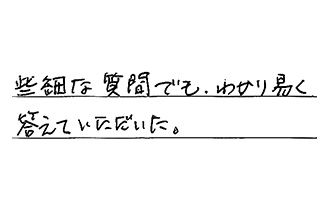 些細な質問でも、わかり易く
答えていただいた。